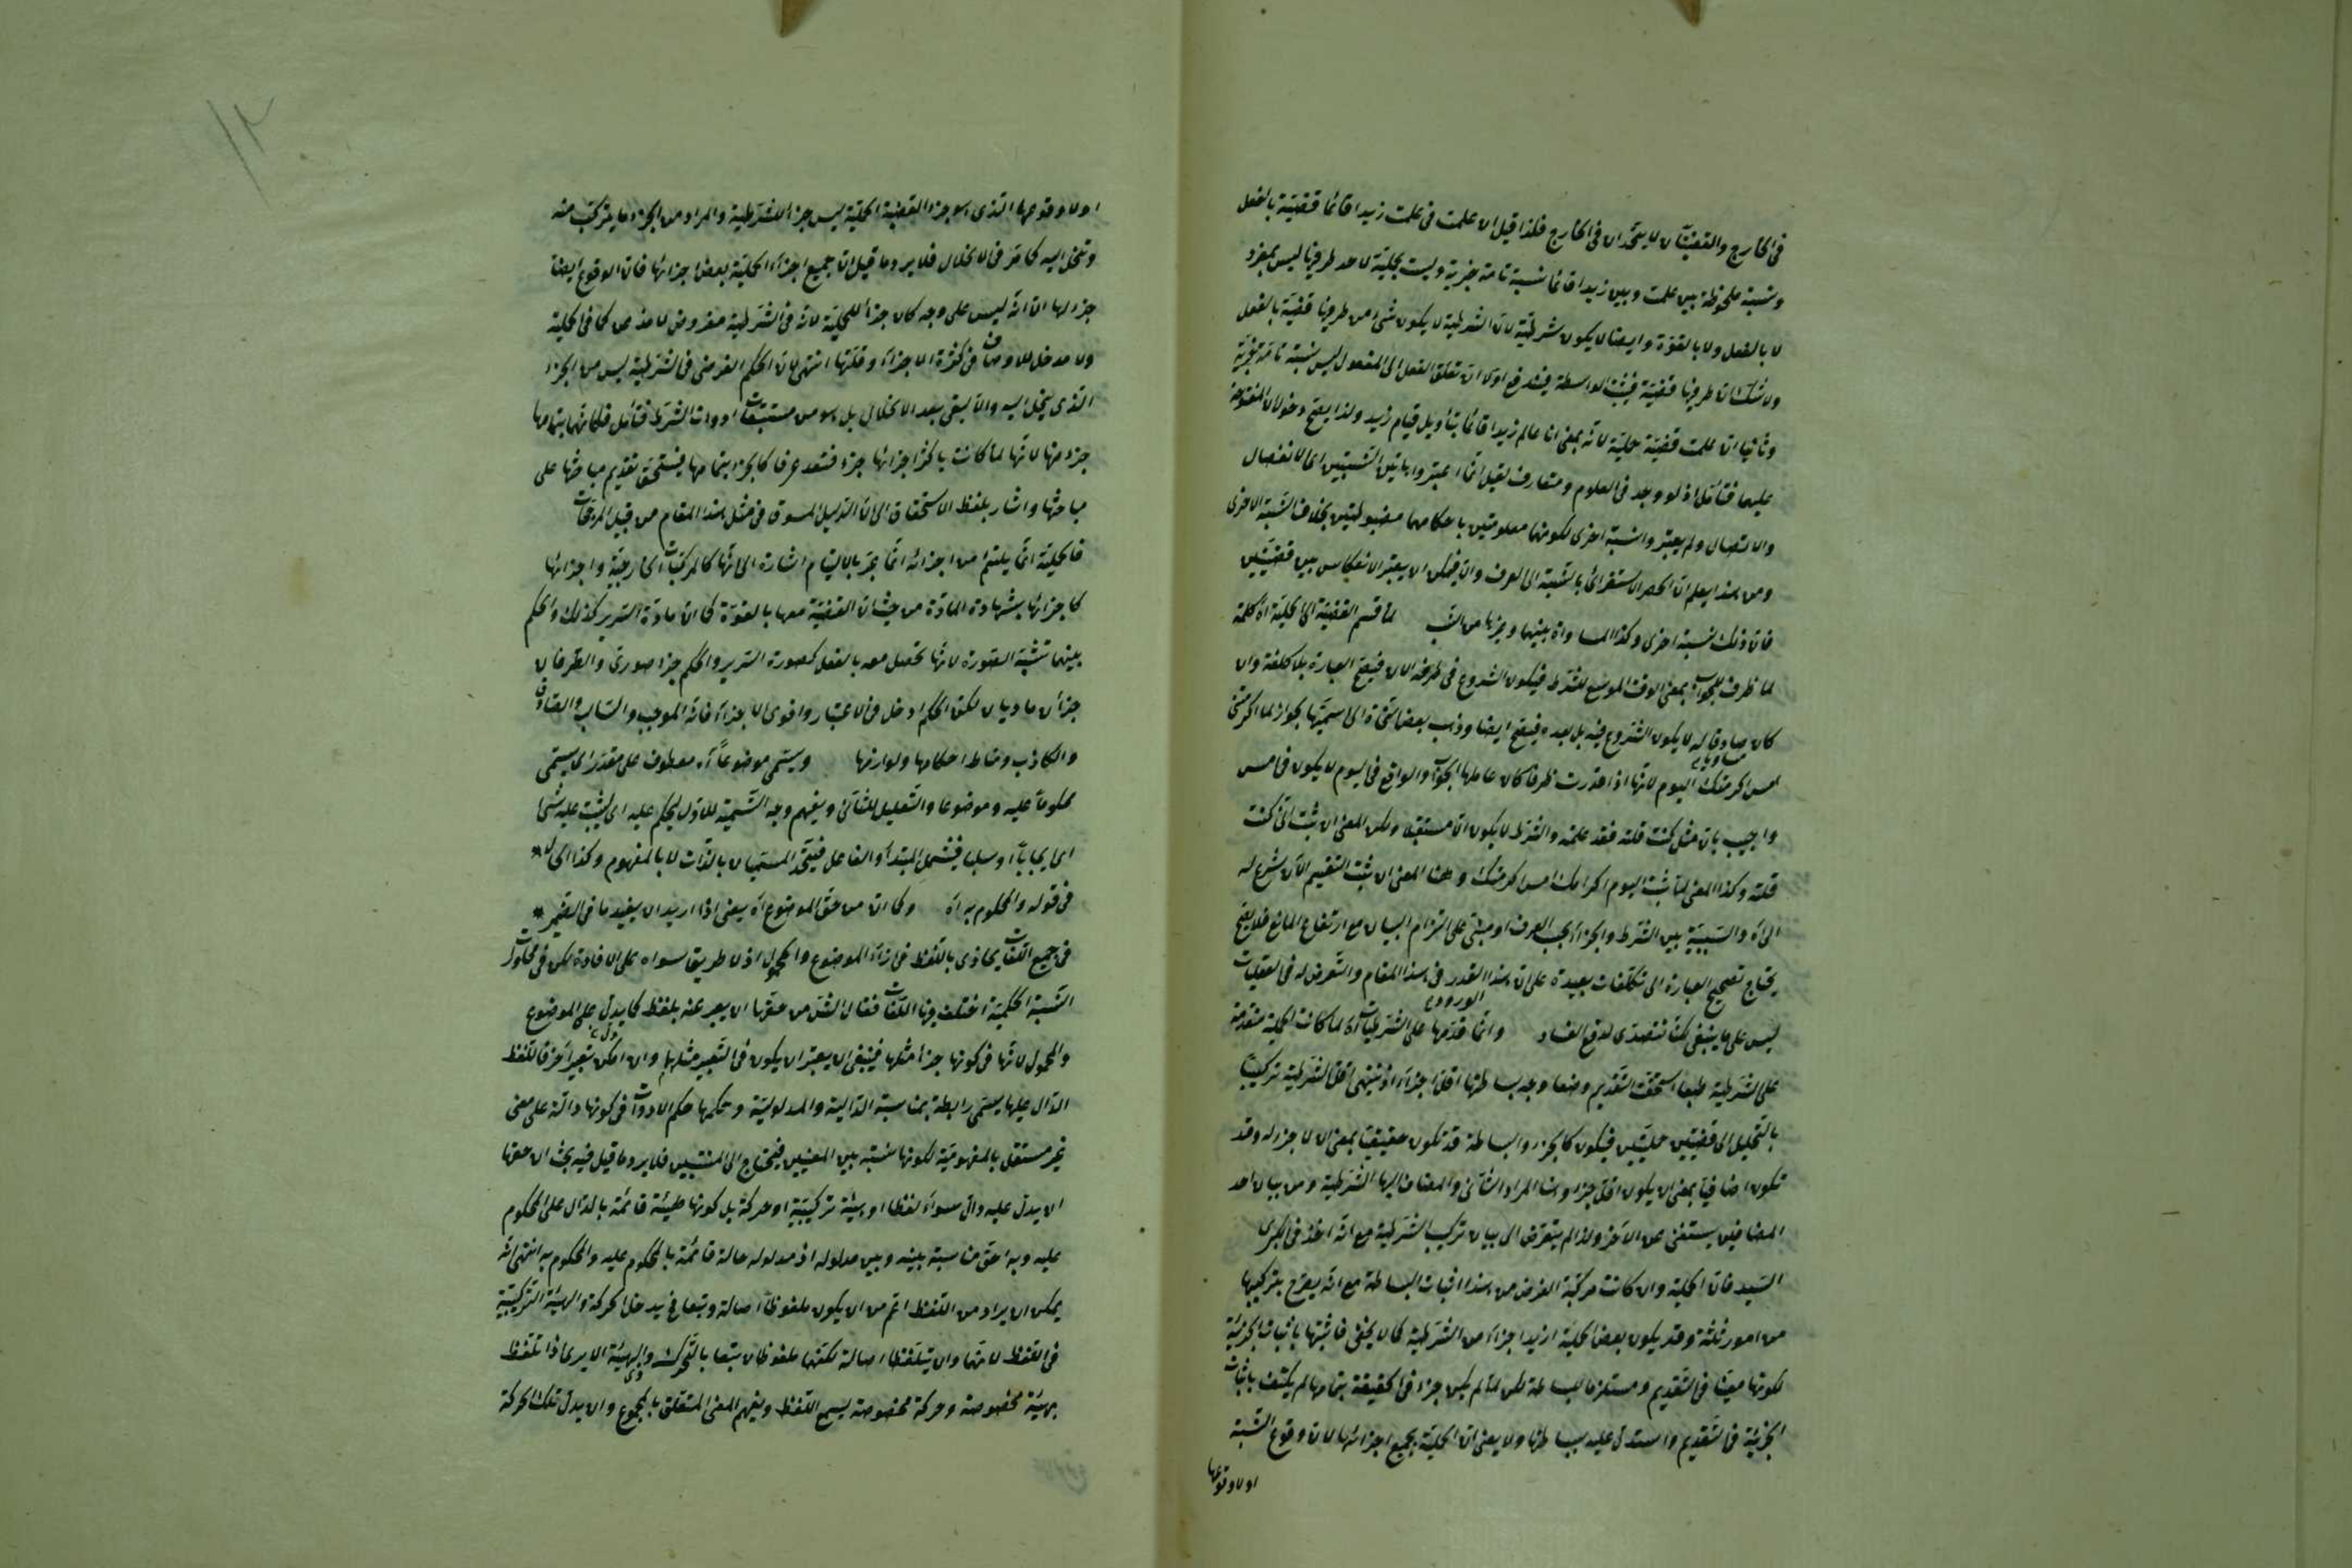 في الخارج والقضيتان لا يتحدان في الخارج فلذا قيل ان علمت في علمت زيدا قائما قضية بالفعل
ونسبة ملحوظة بين علمت وبين زيدا قائما نسبة تامة خبرية وليست بحملية لان احد طرفيها ليس بمفرد
لا بالفعل ولا بالقوة وايضا لا يكون شرطية لان الشرطية لا يكون شئ من طرفيها قضية بالفعل
ولا شك ان طرفيها قضية فيثبت الواسطة فيندفع اولا ان تعلق الفعل الى المفعول ليس نسبة تامة خبرية
وثانيا ان علمت قضية حملية لانه بمعنى انا عالم زيدا قائما بتأويل قيام زيد ولذا يصح دخول ان المفتوحة
عليها فتأمل اذ لو وجد في العلوم ومتعارف لقيل انما اعتبروا هاتين النسبتين اى الانفصال
والاتصال ولم يعتبروا نسبة اخرى لكونهما معلومتين باحكامهما مضبوطتين بخلاف النسبة الاخرى
ومن هذا يعلم ان الحصر الاستقرائى بالنسبة الى العرف والا فيمكن ان يعتبر الانعكاس بين قضيتين
فان ذلك نسبة اخرى وكذا المساواة بينهما وغيرها من النسب لما قسم القضية الى الحملية اه كلمة
لما ظرف للجواب بمعنى الوقت الموسع للشرط فيكون الشروع في طرفه الان فيصح العبارة بلا كلفة وان
كان مساويا له لا يكون الشروع فيه بل بعده فيصح ايضا وذهب بعض النحاة الى اسميتها بجواز لما اكرمتنى
امس اكرمتك اليوم لانها اذا قدرت ظرفا كان عاملها الجواب والواقع في اليوم لا يكون في امس
واجيب بان مثل كنت قلته فقد علمته والشرط لا يكون الا مستقبلا ولكن المعنى ان ثبت انى كنت
قلته وكذا المعنى لما ثبت اليوم اكرامك امس اكرمتك وهنا المعنى ان ثبت التقسيم الان شرع له
الى اه والسببية بين الشرط والجزاء بحسب العرف او مبنى على التزام البيان مع ارتفاع المانع فلا يصح
يحتاج تصحيح العبارة الى تكلفات بعيدة على ان هذا القدر في هذا المقام والتعرض له في العقليات
ليس على ما ينبغى لكنا نتصدى لدفع الفساد وانما قدمها على الشرطيات اه لما كانت الحملية متقدمة
على الشرطية طبعا استحقت التقديم وضعا وجه بساطتها اقل اجزاء اذ ينتهى اقل الشرطية تركيبا
بالتحليل الى قضيتين حمليتين فيكون كالجزء والبساطة قد تكون حقيقيا بمعنى ان لا جزء له وقد
تكون اضافيا بمعنى ان يكون اقل جزءا وهنا المراد الثانى والمضاف اليها الشرطية ومن بيان احد
المضافين يستغنى عن الاخر ولذا لم يتعرض الى بيان تركيب الشرطية مع انه اخذ في الكبرى
السيد فان الحملية وان كانت مركبة الغرض من هذا اثبات البساطة مع انه يصرح بتركيبها
من امور ثلثة وقد يكون بعض الحملية ازيد اجزاء من الشرطية كما لا يخفى فاثبتها باثبات الجزئية
لكونها معينا في التقديم ومستلزما للبساطة لكن لما لم يكن جزء في الحقيقة بتمامها لم يكتف باثبات
الجزئية في التقديم واستدل عليه ببساطتها ولا يعنى ان الحملية بجميع اجزائها لان وقوع النسبة
او لا وقوعها
١٢
او لا وقوعها الذى هو جزء القضية الحملية ليس جزء للشرطية والمراد من الجزء ما يتركب منه
وتنحل اليه كما مر في الانحلال فلا يرد ما قيل ان جميع اجزاء الحملية بعض اجزائها فان الوقوع ايضا
جزء لها الا انه ليس على وجه كان جزأ للحملية لانه في الشرطية مفروض لا مذعن كما في الحملية
ولا مدخل للاوصاف في كثرة الاجزاء وقلتها انتهى لان الحكم الفرضى في الشرطية ليس من الجزء
الذى ينحل اليه والا لبقى بعد الانحلال بل هو من مستتبعات ادوات الشرط فتأمل فكانها بتمامها
جزء منها لانها لما كانت باكثر اجزائها جزء فتعد عرفا كالجزء بتمامها فيستحق تقديم مباحثها على
مباحثها واشار بلفظ الاستحقاق الى ان الدليل المسوق في مثل هذا المقام من قبيل المرجحات
فالحملية انما يلتئم من اجزائه انما عبر بالالتيام اشارة الى انها كالمركبات الخارجية واجزائها
كاجزائها بشهادة المادة من حيث ان القضية معها بالقوة كما ان مادة السرير كذلك والحكم
بينهما تشبه الصورة لانها تحصل معه بالفعل كصورة السرير والحكم جزء صورى والطرفان
جزأن ماديان لكن الحكم ادخل في الاعتبار واقوى الاجزاء فانه الموجب والسالب والصادق
والكاذب ومناط احكامها ولوازمها ويسمى موضوعا اه معطوف على مقدر اى يسمى
محكوما عليه وموضوعا والتعليل للثانى ويفهم وجه التسمية للاول ليحكم عليه اى ليثبت عليه شئ
اى ايجابا او سلبا فيشمل المبتدأ والفاعل فيتحد المسميان بالذات لا بالمفهوم وكذا الحال
في قوله والمحكوم به اه وكما ان من حق الموضوع اه يعنى اذا اريد ان يفيد ما في الضمير
في جميع اللغات يحاذى باللفظ في ازاء الموضوع والمحمول اذ لا طريق سواه على الافادة لكن في مدلول
النسبة الحكمية اختلف فيها اللغات فقال الشق من حقها ان يعبر عنه بلفظ كما يدل على الموضوع
والمحمول لانها في كونها جزأ مثلها فينبغى ان يعتبر ان يكون في التعبير مثلهما وان امكن تعبير اخر فاللفظ
الدال عليها يسمى رابطة بمناسبة الدالية والمدلولية وحكمها حكم الادوات في كونها دالة على معنى
غير مستقل بالمفهومية لكونها نسبة بين المعنيين فيحتاج الى المنتسبين فلا يرد ما قيل فيه بحث ان حقها
ان يدل عليه دال سواء لفظا او هيئة تركيبية او حركة بل كونها هيئة قائمة بالدال على المحكوم
عليه وبه احق مناسبة بينه وبين مدلوله اذ مدلوله حالة قائمة بالمحكوم عليه والمحكوم به انتهى لانه
يمكن ان يراد من اللفظ اعم من ان يكون ملفوظا اصالة وتبعا فيدخل الحركة والهيئة التركيبية
في اللفظ لانهما وان يتلفظا اصالة لكنهما ملفوظان تبعا بالتحرك والهيئة الا يرى اذا تلفظ
بهيئة مخصوصة وحركة مخصوصة يسمع اللفظ ويفهم المعنى المتعلق بالمجموع وان يدل تلك الحركة